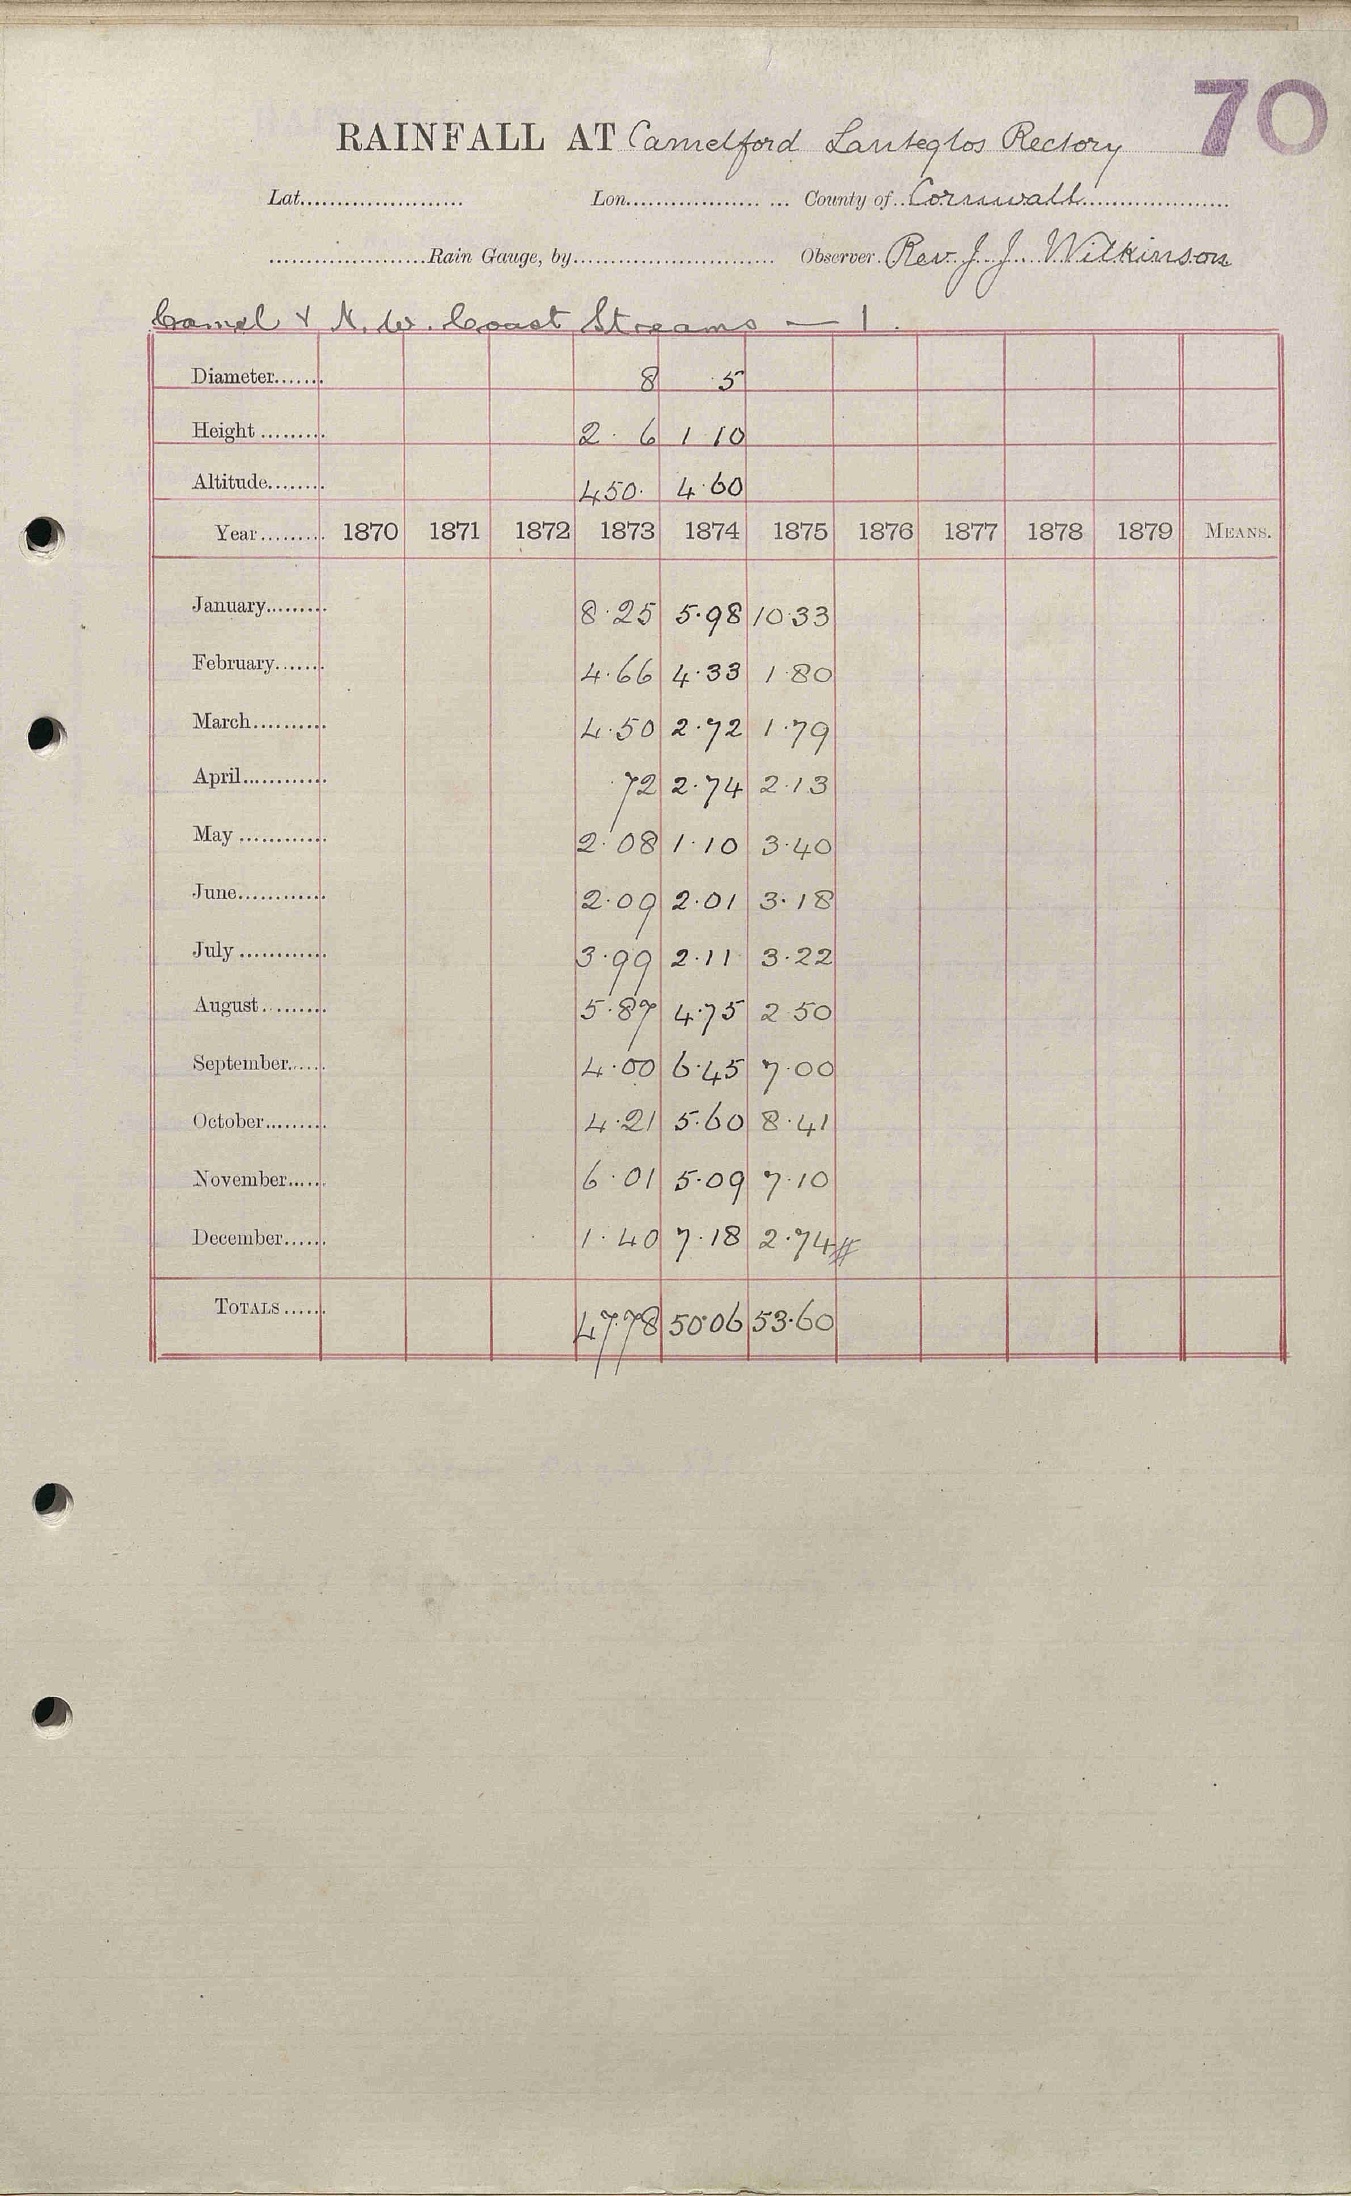 70
RAINFALL AT Camelford Lanteglos Rectory
Lat...................... Lon.................. ... County of..Cornwall....................
.....................Rain Gauge, by........................... Observer.Rev. J. J. Wilkinson
Camel & N. W. Coast Streams — 1.
Diameter....... 8 5
Height ......... 2 · 6 1 10
Altitude........ 450· 4·60
Year......... 1870 1871 1872 1873 1874 1875 1876 1877 1878 1879 MEANS.
January......... 8·25 5·98 10·33
February....... 4·66 4·33 1·80
March.......... 4·50 2·72 1·79
April............ ·72 2·74 2·13
May ............ 2·08 1·10 3·40
June............ 2·09 2·01 3·18
July ............ 3·99 2·11 3·22
August......... 5·87 4·75 2·50
September...... 4·00 6·45 7·00
October......... 4·21 5·60 8·41
November...... 6·01 5·09 7·10
December...... 1·40 7·18 2·74#
TOTALS...... 47·78 50·06 53·60